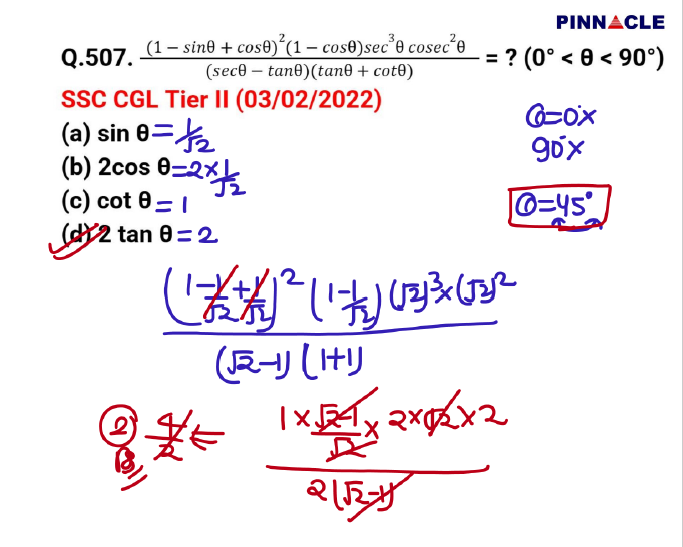 PINNACLE
Q.507. \frac{(1 − sinθ + cosθ)^2(1 − cosθ)sec^3θ cosec^2θ}{(secθ − tanθ)(tanθ + cotθ)} = ? (0° < θ < 90°)
SSC CGL Tier II (03/02/2022)
(a) sin θ = 1/√2
(b) 2cos θ = 2×1/√2
(c) cot θ = 1
(d) 2 tan θ = 2
θ=0°×
90°×
θ=45°
(1−1/√2+1/√2)^2 (1−1/√2) (√2)^3×(√2)^2
(√2−1) (1+1)
1×\frac{√2−1}{√2}×2×√2×2
2(√2−1)
2 4/2 ⇐